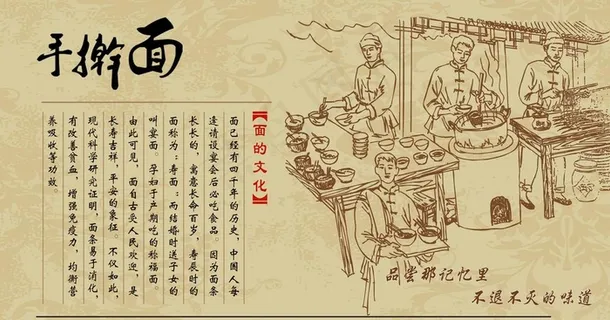 手擀面
【面的文化】
面已经有四千年的历史，中国人每
逢请设宴会后必吃食品。因为面条
长长的，寓意长命百岁，寿辰时的
面称为：寿面：而结婚时送子女的
叫宴面。孕妇于产期吃的称福面。
由此可见，面自古受人民欢迎，是
长寿吉祥，平安的象征。不仅如此，
现代科学研究证明，面条易于消化，
有改善贫血，增强免疫力，均衡营
养吸收等功效。
品尝那记忆里
不退不灭的味道